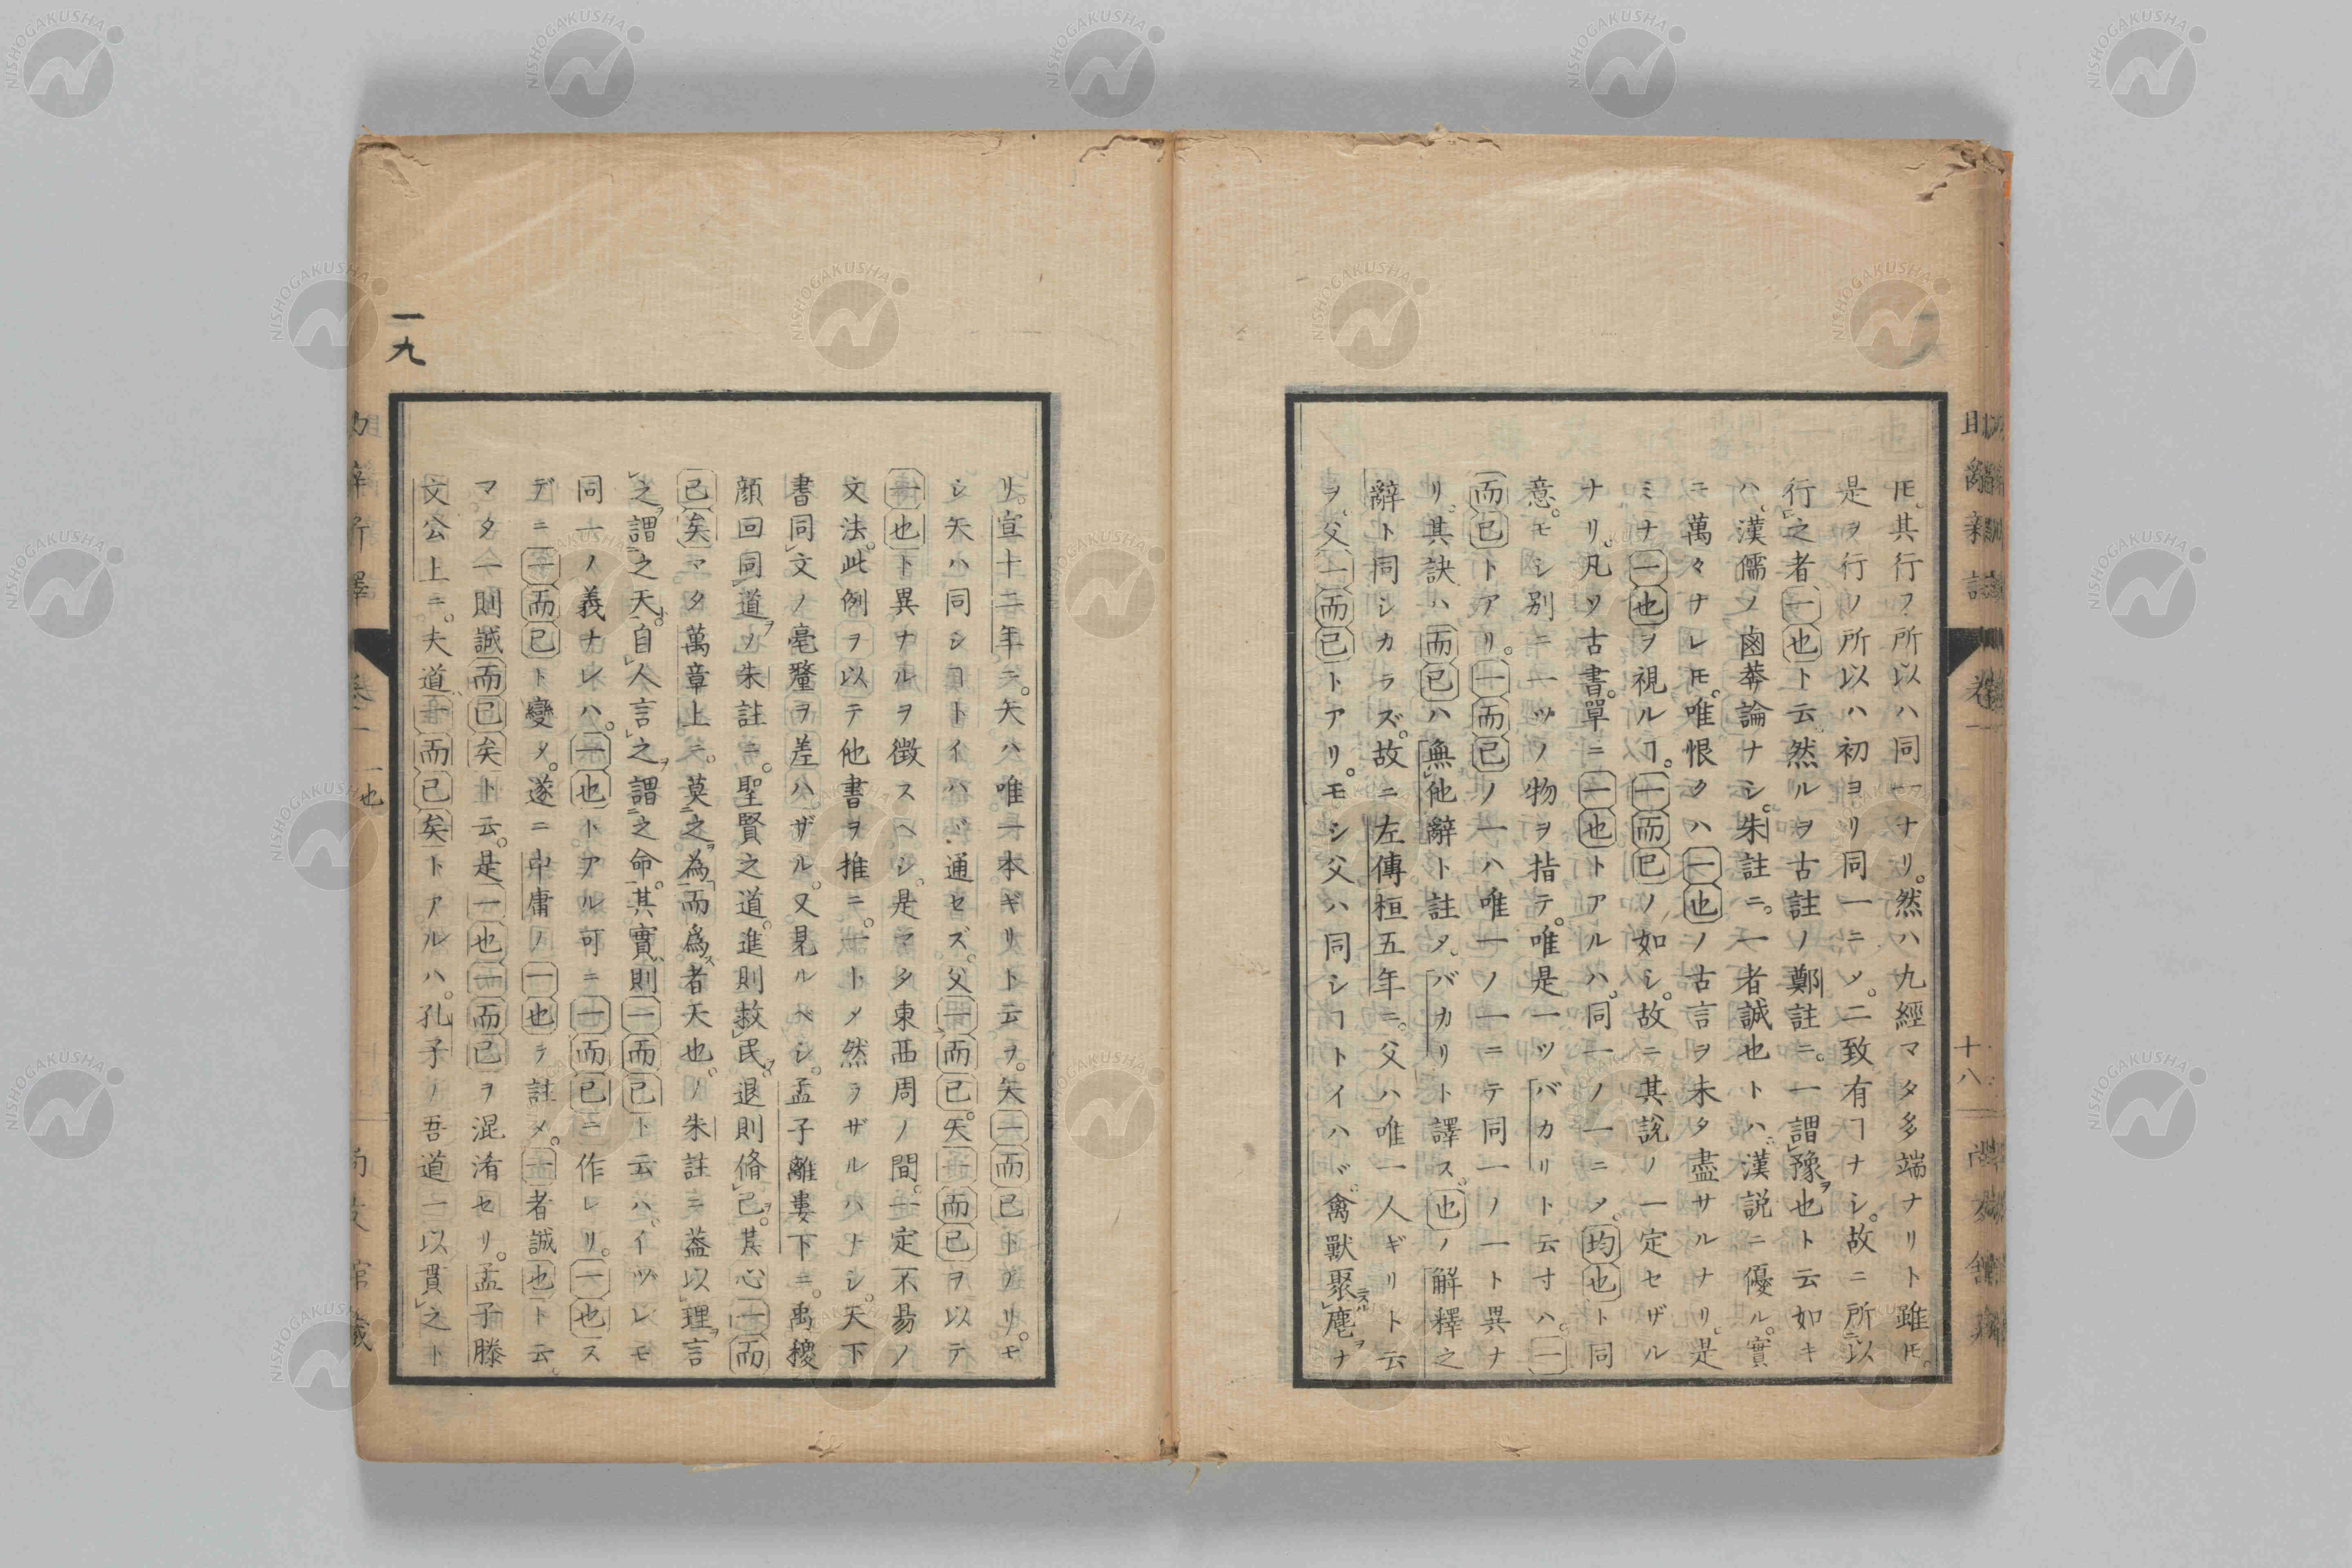 圧。其行フ所以ハ同一ナリ。然ハ九經マタ多端ナリト雖圧。
是ヲ行ノ所以ハ初ヨリ同一ニソ。二致有ヿナシ。故ニ所以
行之者一也ト云。然ルヲ古註ノ鄭註ニ。一謂豫也ト云如キ
ハ。漢儒ノ鹵莽論ナシ。朱註ニ。一者誠也トハ。漢説ニ優ル。實
ニ萬々ナレ圧。唯恨クハ一也ノ古言ヲ未タ盡サルナリ。是
ミナ一也ヲ視ルヿ。一而已ノ如シ。故ニ其説ノ一定セザル
ナリ。凡ソ古書。單ニ一也トアルハ。同一ノ一ニソ。均也ト同
意。モシ別ニ一ツノ物ヲ指テ。唯是一ツバカリト云寸ハ。一
而已トアリ。一而已ノ一ハ唯一ノ一ニテ同一ノ一ト異ナ
リ。其訣ハ而已ハ無他辭ト註タ。バカリト譯ス。也ノ解釋之
辭ト同シカラズ。故ニ左傳桓五年ニ。父ハ唯一人ギリト云
ヲ。父一而已トアリ。モシ父ハ同シヿトイハバ。禽獸聚麀ヲナ
リ。宣十二年ニ。矢ハ唯一本ギリト云ヲ。矢一而已トアリ。モ
シ矢ハ同シヿトイハバ。通セズ。父一而已。矢一而已ヲ以テ
一也ト異ナルヲ徴スヘシ。是マタ東西周ノ間。一定不易ノ
文法。此例ヲ以テ他書ヲ推ニ。一トメ然ラザルハナシ。天下
書同文ノ毫釐ヲ差ハザル。又見ルベシ。孟子離婁下ニ。禹稷
顔回同道ノ朱註ニ。聖賢之道。進則救民。退則脩己。其心一而
已矣マタ萬章上ニ。莫之為而爲者天也ノ朱註ニ蓋以理言
之謂之天。自人言之謂之命。其實則一而已ト云ハ。イツレモ
同一ノ義ナレハ。一也トアル可ニ一而已ニ作レリ。一也ス
デニ一而已ト變タ。遂ニ中庸ノ一也ヲ註メ。一者誠也ト云。
マタ一則誠而已矣ト云。是一也一而已ヲ混淆セリ。孟子滕
文公上ニ。夫道一而已矣トアルハ。孔子ノ吾道一以貫之ト
一九
卷一
一也
十八